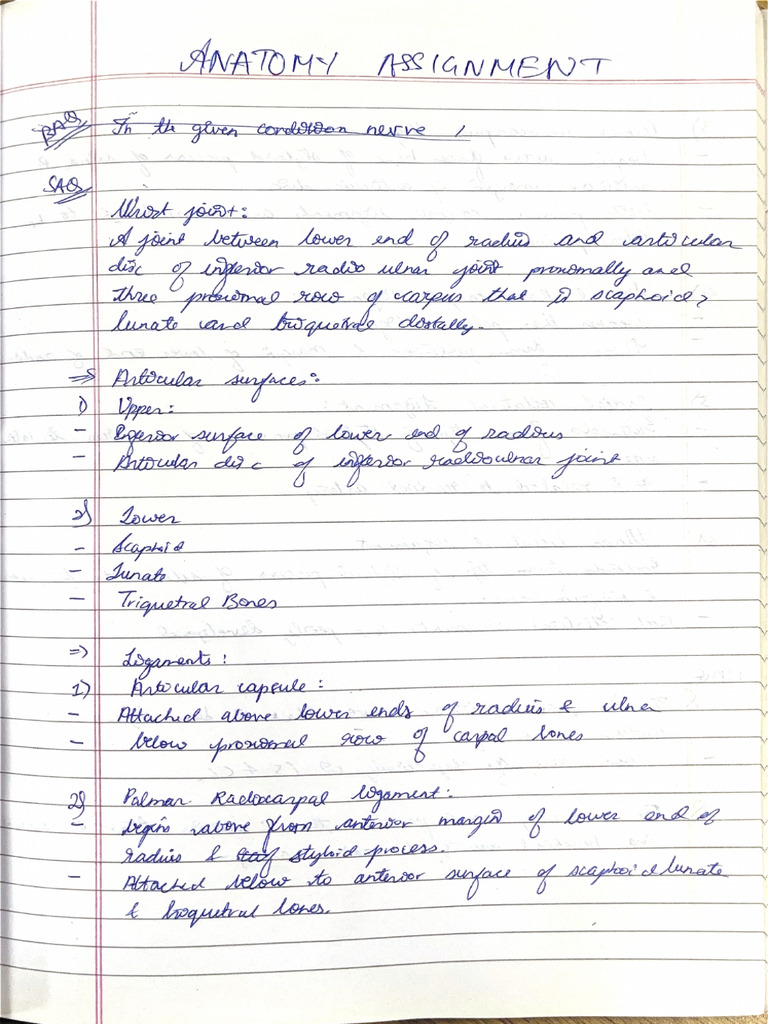 ANATOMY ASSIGNMENT
BAQ In the given condition nerve /
SAQ
Wrist joint:
A joint between lower end of radius and articular
disc of inferior radio ulnar joint proximally and
three proximal row of carpus that is scaphoid,
lunate and triquetral distally.
⇒ Articular surfaces:
1) Upper:
- Inferior surface of lower end of radius
- Articular disc of inferior radioulnar joint
2) Lower
- Scaphoid
- Lunate
- Triquetral Bones
⇒ Ligaments:
1) Articular capsule:
- Attached above lower ends of radius & ulna
- below proximal row of carpal bones
2) Palmar Radiocarpal ligament:
- begins above from anterior margin of lower end of
radius & styloid process.
- Attached below to anterior surface of scaphoid lunate
& triquetral bones.